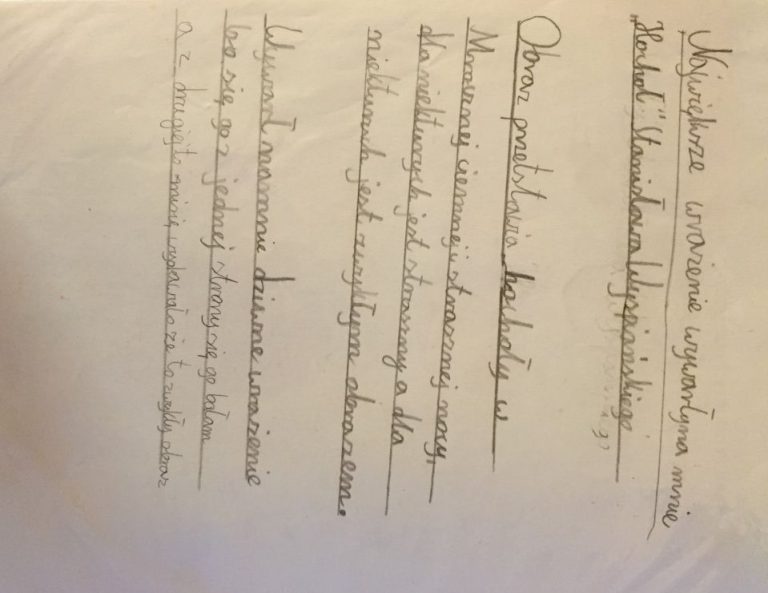 Największe wrażenie wywarł na mnie
„Hochoł" Stanisława Wyspiańskiego
Obraz przetstawia hochoły w
Mrocznej ciemnej i strasznej nocy,
dla niekturych jest straszny a dla
niekturych jest zwykłym obrazem.
Wywarł na mnie dziwne wrażenie
bo się go z jednej strony się go bałam
a z drugiej to mi się wydawało że to zwykły obraz